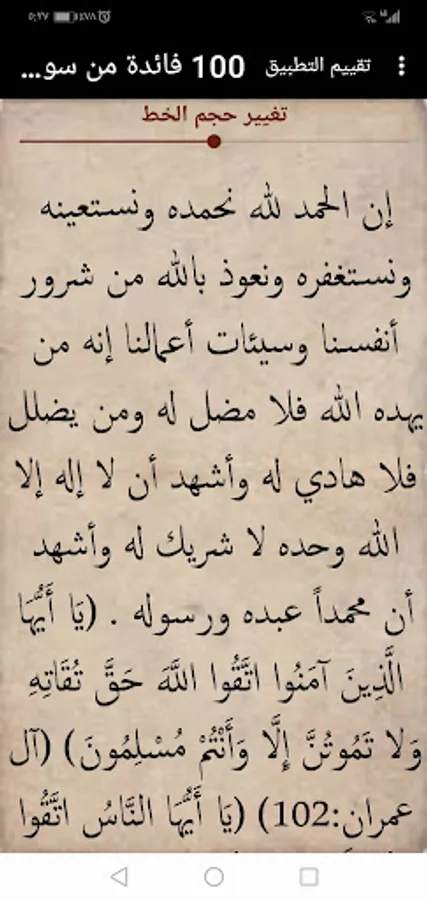 ٥:٢٧ ٪٧٨
100 فائدة من سو... تقييم التطبيق
تغيير حجم الخط
إن الحمد لله نحمده ونستعينه
ونستغفره ونعوذ بالله من شرور
أنفسنا وسيئات أعمالنا إنه من
يهده الله فلا مضل له ومن يضلل
فلا هادي له وأشهد أن لا إله إلا
الله وحده لا شريك له وأشهد
أن محمداً عبده ورسوله . (يَا أَيُّهَا
الَّذِينَ آمَنُوا اتَّقُوا اللَّهَ حَقَّ تُقَاتِهِ
وَلا تَمُوتُنَّ إِلَّا وَأَنْتُمْ مُسْلِمُونَ) (آل
عمران:102) (يَا أَيُّهَا النَّاسُ اتَّقُوا